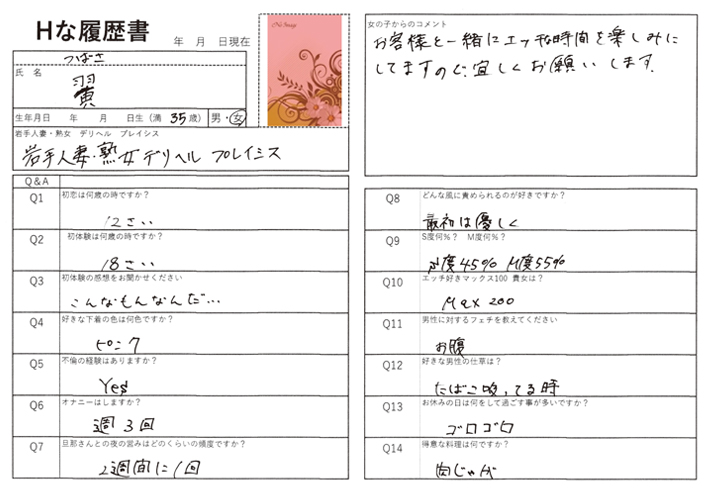 Hな履歴書
年 月 日現在
No Image
つばさ
氏 名
翼
生年月日 年 月 日生 (満 35 歳) 男・女
岩手人妻・熟女 デリヘル プレイシス
岩手人妻・熟女デリヘル プレイシス
女の子からのコメント
お客様と一緒にエッチな時間を楽しみに
してますので、宜しくお願いします。
Q&A
Q1 初恋は何歳の時ですか?
12さい
Q2 初体験は何歳の時ですか?
18さい
Q3 初体験の感想をお聞かせください
こんなもんなんだ…
Q4 好きな下着の色は何色ですか?
ピンク
Q5 不倫の経験はありますか?
Yes
Q6 オナニーはしますか?
週3回
Q7 旦那さんとの夜の営みはどのくらいの頻度ですか?
2週間に1回
Q8 どんな風に責められるのが好きですか?
最初は優しく
Q9 S度何%? M度何%?
S度45% M度55%
Q10 エッチ好きマックス100 貴女は?
Max 200
Q11 男性に対するフェチを教えてください
お腹
Q12 好きな男性の仕草は?
たばこ吸ってる時
Q13 お休みの日は何をして過ごす事が多いですか?
ゴロゴロ
Q14 得意な料理は何ですか?
肉じゃが